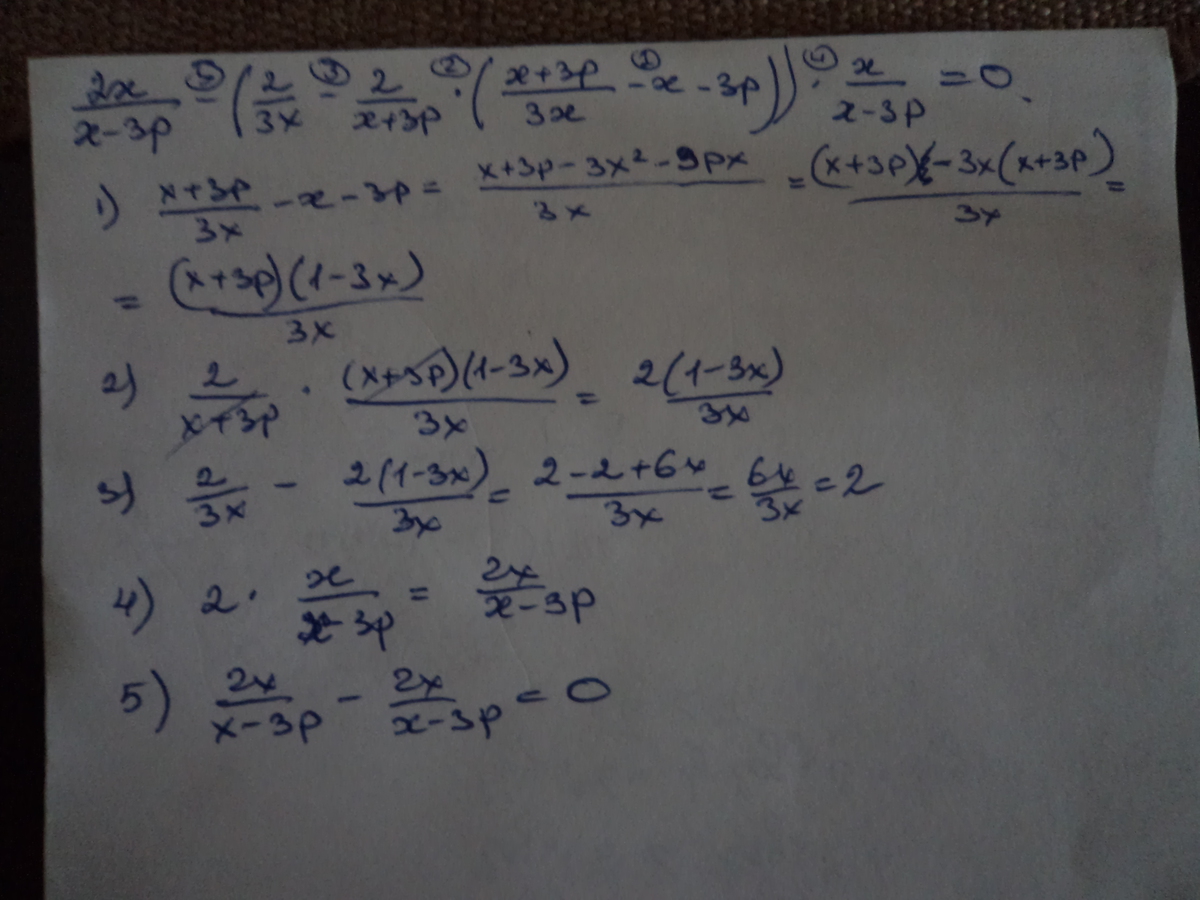 2x/(x-3p) ⑤- (2/3x ③- 2/(x+3p) ②· ((x+3p)/3x ①- x - 3p)) ④· x/(x-3p) = 0.
1) (x+3p)/3x - x - 3p = (x+3p-3x²-9px)/3x = ((x+3p)-3x(x+3p))/3x =
= (x+3p)(1-3x)/3x
2) 2/(x+3p) · (x+3p)(1-3x)/3x = 2(1-3x)/3x
3) 2/3x - 2(1-3x)/3x = (2-2+6x)/3x = 6x/3x = 2
4) 2 · x/(x-3p) = 2x/(x-3p)
5) 2x/(x-3p) - 2x/(x-3p) = 0